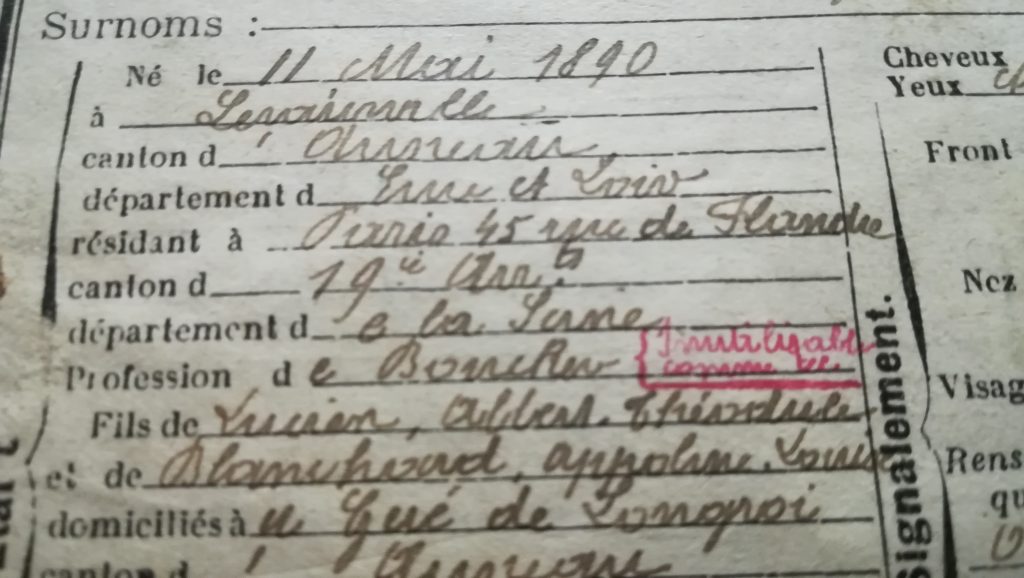 Surnoms :
Né le 11 Mai 1890
à Levainville
canton d' Auneau
département d Eure et Loir
résidant à Paris 45 rue de Flandre
canton d 19e Arr.t
département de la Seine
Profession de Boucher
Inutilisable
comme tel
Fils de Lucien, Albert. Théodule
et de Blanchard, appoline. Louise
domiciliés à u Gué de Longroi
canton d' Auneau
Signalement.
Cheveux
Yeux
Front
Nez
Visag
Rens
qu